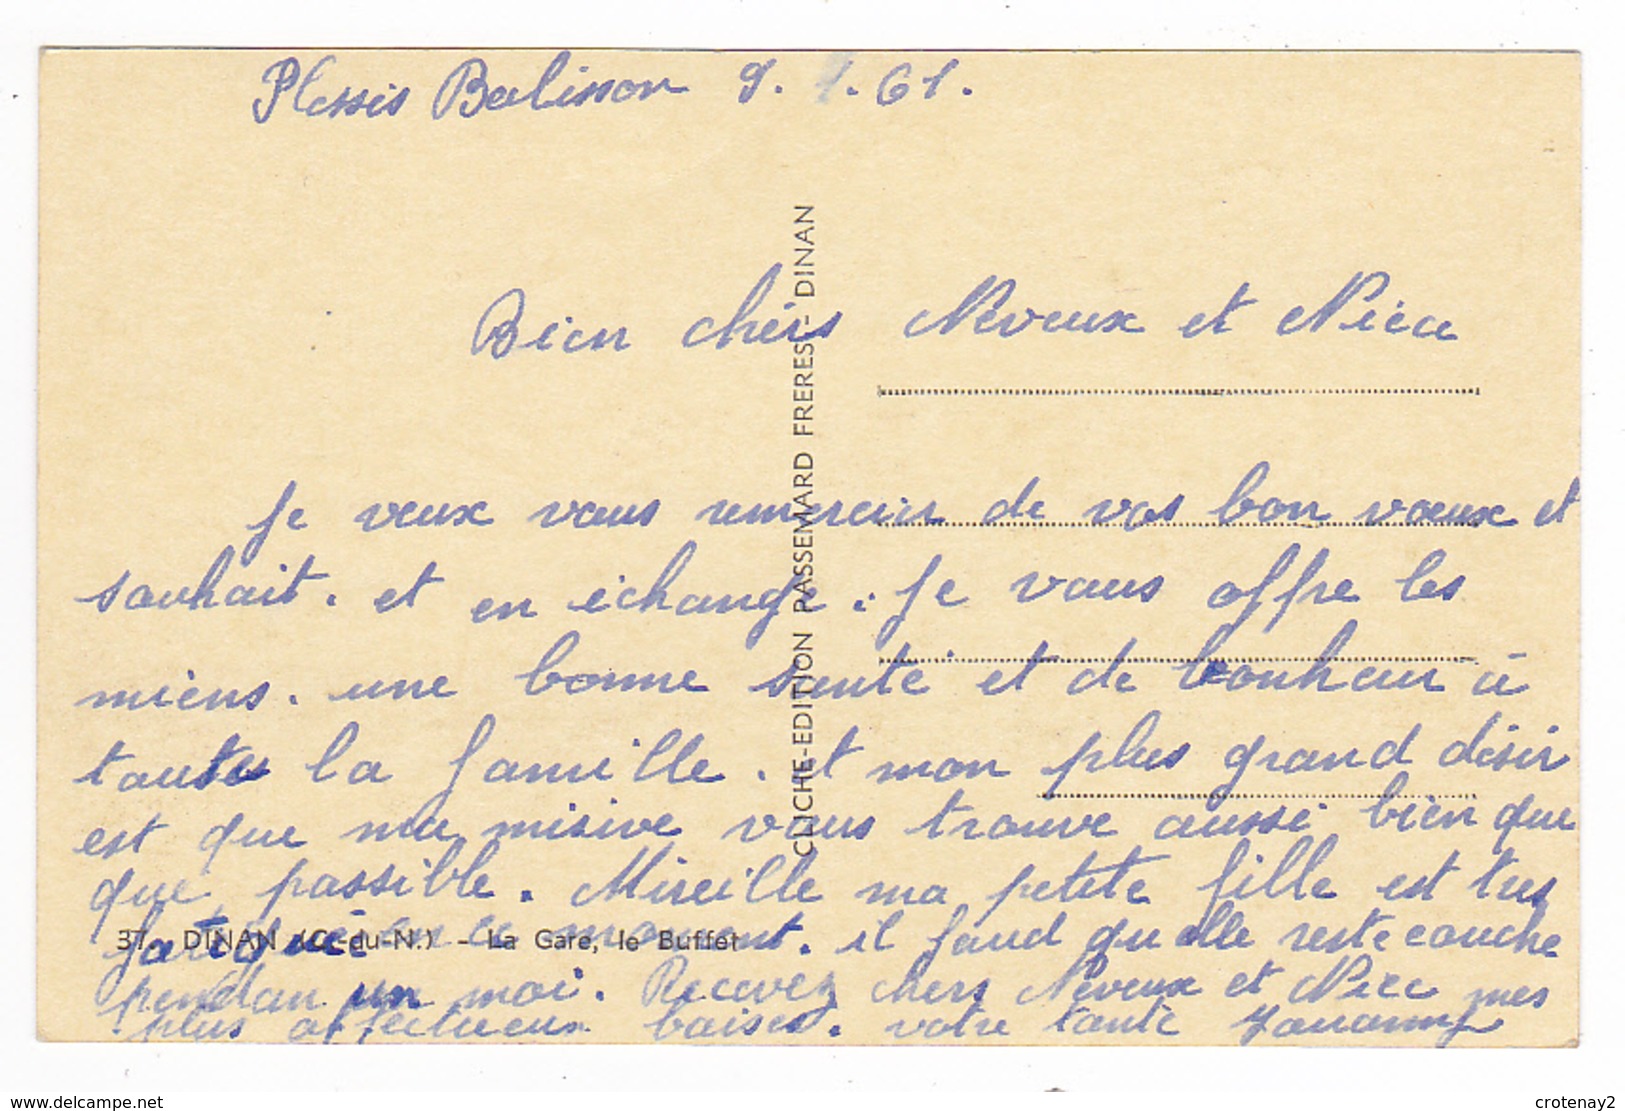 Plessis Balisson 9. 1. 61.
Bien chérs Neveux et Niece
Je veux vous remercier de vos bon voeux et
souhait. et en échange. Je vous offre les
miens. une bonne santé et de bonheur à
toute la famille. et mon plus grand désir
est que ma misive vous trouve aussi bien que
que possible. Mireille ma petite fille est tres
fatigué en ce moment. il faud qu elle reste couche
pendan un moi. Recevez chers Neveux et Niece mes
plus affectueux baises. votre tante
37. DINAN (C.-du-N.) - La Gare, le Buffet
CLICHE-EDITION PASSEMARD FRERES - DINAN
www.delcampe.net
crotenay2